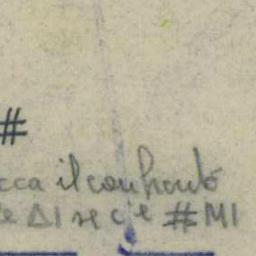 #
cca il confronto
se Δ1 se c'è # M1